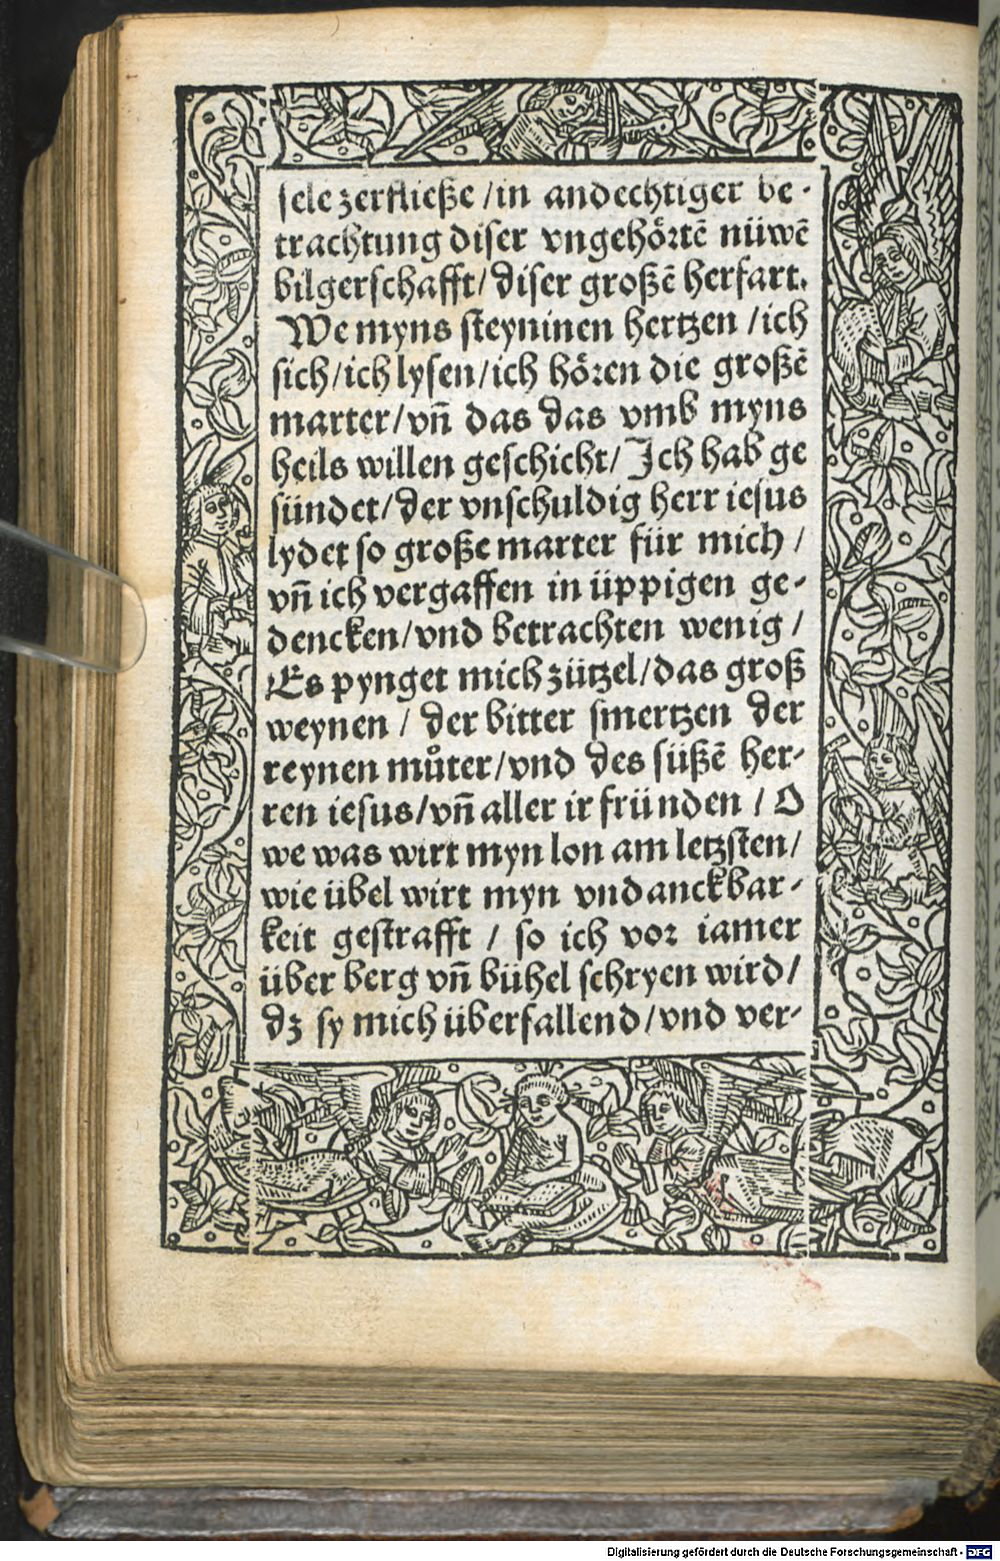 sele zerfließe /in andechtiger be⸗
trachtung diser vngehörtē nüwē
bilgerschafft/ diser großē herfart.
We myns steyninen hertzen /ich
sich/ich lysen/ich hören die großē
marter/vn̄ das das vmb myns
heils willen geschicht/ Ich hab ge
sündet/der vnschuldig herr iesus
lydet so große marter für mich /
vn̄ ich vergaffen in üppigen ge⸗
dencken/vnd betrachten wenig /
Es pynget mich zützel/das groß
weynen / der bitter smertzen der
reynen můter/vnd des süßē her⸗
ren iesus/vn̄ aller ir fründen / O
we was wirt myn lon am letzsten/
wie übel wirt myn vndanckbar⸗
keit gestrafft / so ich vor iamer
über berg vn̄ bühel schryen wird/
dz sy mich überfallend/vnd ver⸗
Digitalisierung gefördert durch die Deutsche Forschungsgemeinschaft - DFG